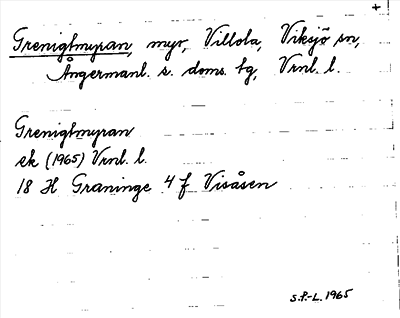 +
Grenigtmyran, myr, Villola, Viksjö sn,
Ångermanl. s. doms. tg, Vrnl. l.
Grenigtmyran
ek (1965) Vrnl. l.
18 H Graninge 4 f Visåsen
S.P.-L. 1965